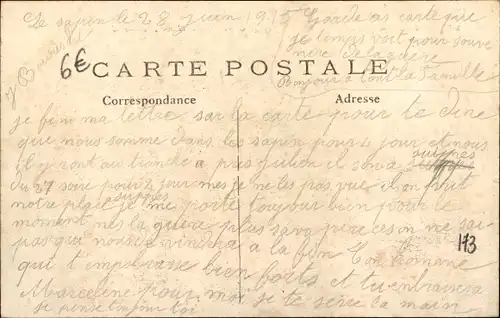 Le sapin le 28 juin 1915 Garde as carte qui
je temps voit pour souve
nire de la guère
Bonjour a tout la famille
6€
CARTE POSTALE
Correspondance Adresse
je fini ma lettre sur la carte pour te dire
que nous somme dans les sapin pour 4 jour et nous
il y ront au tranché a près Julien il son a
du 27 soire pour 4 jour mes je ne les pas vue il on prit
notre place je me porte toujour bien pour le
moment mes la guère plus sava
pas qui nous a a la fin Ton Homme
qui t'embrasse bien forts et tu enbrasera
Marceline pour moi je te sère la main
je pense toi
113